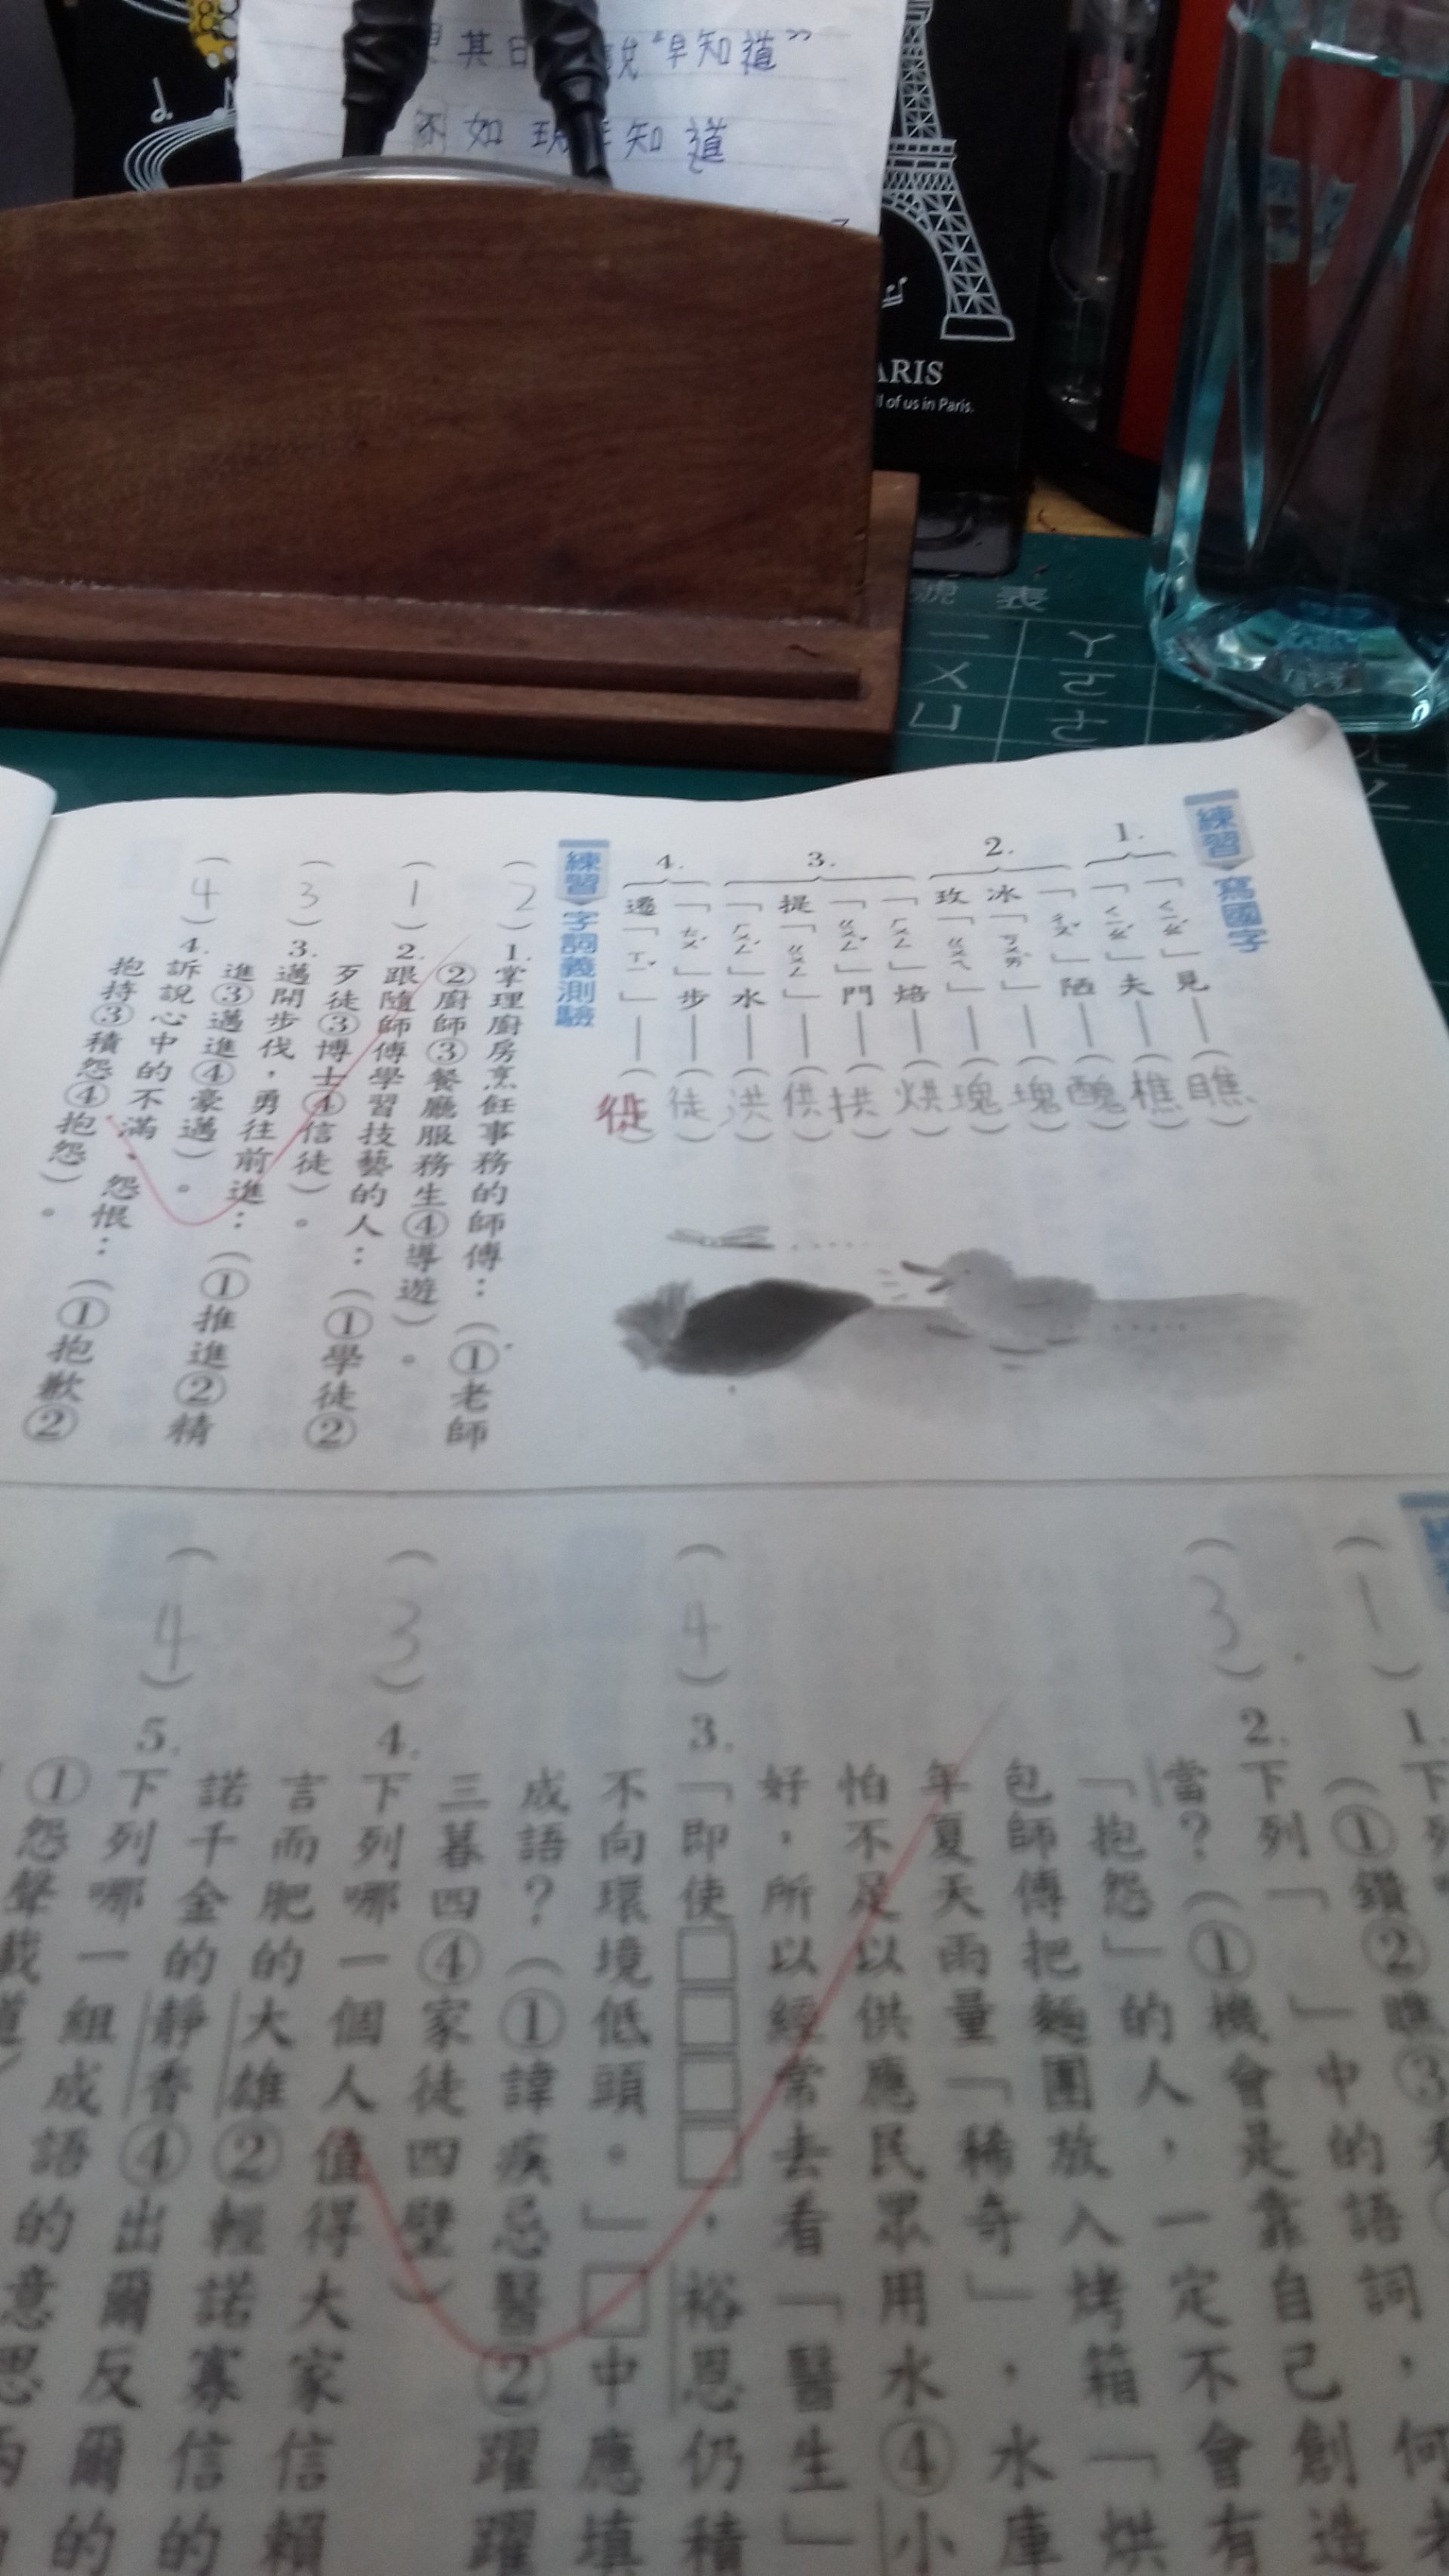 其日
說“早知道”
不如
知道
ARIS
ll of us in Paris.
號表
一
ㄚ
ㄨ
ㄛ
ㄩ
ㄜ
練習
寫國字
1.
「ㄑㄧㄠˊ」見——(瞧)
「ㄑㄧㄠˊ」夫——(樵)
2.
「ㄔㄡˇ」陋——(醜)
冰「ㄎㄨㄞˋ」——(塊)
玫「ㄍㄨㄟ」——(瑰)
3.
「ㄏㄨㄥ」焙——(烘)
「ㄍㄨㄥˇ」門——(拱)
提「ㄍㄨㄥ」——(供)
「ㄏㄨㄥˊ」水——(洪)
4.
「ㄊㄨˊ」步——(徒)
遷「ㄒㄧˇ」——(徙)
練習
字詞義測驗
(2)1.掌理廚房烹飪事務的師傅：(①老師
②廚師③餐廳服務生④導遊)。
(1)2.跟隨師傅學習技藝的人：(①學徒②
歹徒③博士④信徒)。
(3)3.邁開步伐，勇往前進：(①推進②精
進③邁進④豪邁)。
(4)4.訴說心中的不滿、怨恨：(①抱歉②
抱持③積怨④抱怨)。
(1)1.下列
(①鑽②瞧③
(3)2.下列「」中的語詞，何
當？(①機會是靠自己創造
「抱怨」的人，一定不會有
包師傅把麵團放入烤箱「烘
年夏天雨量「稀奇」，水庫
怕不足以供應民眾用水④小
好，所以經常去看「醫生」
(4)3.「即使□□□□，裕恩仍積
不向環境低頭。」□中應填
成語？(①諱疾忌醫②躍躍
三暮四④家徒四壁)
(3)4.下列哪一個人值得大家信賴
言而肥的大雄②輕諾寡信的
諾千金的靜香④出爾反爾的
(4)5.下列哪一組成語的意思
①怨聲載道